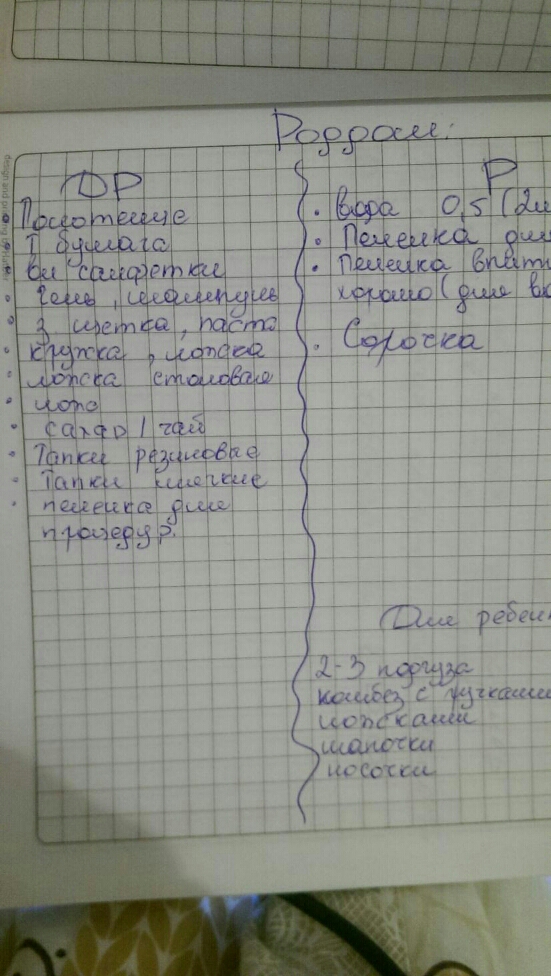 Роддом:
ДР
Полотенце
Т бумага
вл салфетки
Гель, шампунь
З щетка, паста
кружка, ложка
ложка столовая
сахар / чай
Тапки резиновые
Тапки мягкие
пеленка для
процедур.
Р
Вода 0,5 (2
Пеленка для
Пеленка впит
хорошо (для
Сорочка
Для ребен
2-3 подгуза
комбез с ручками
шапочки
носочки
design and